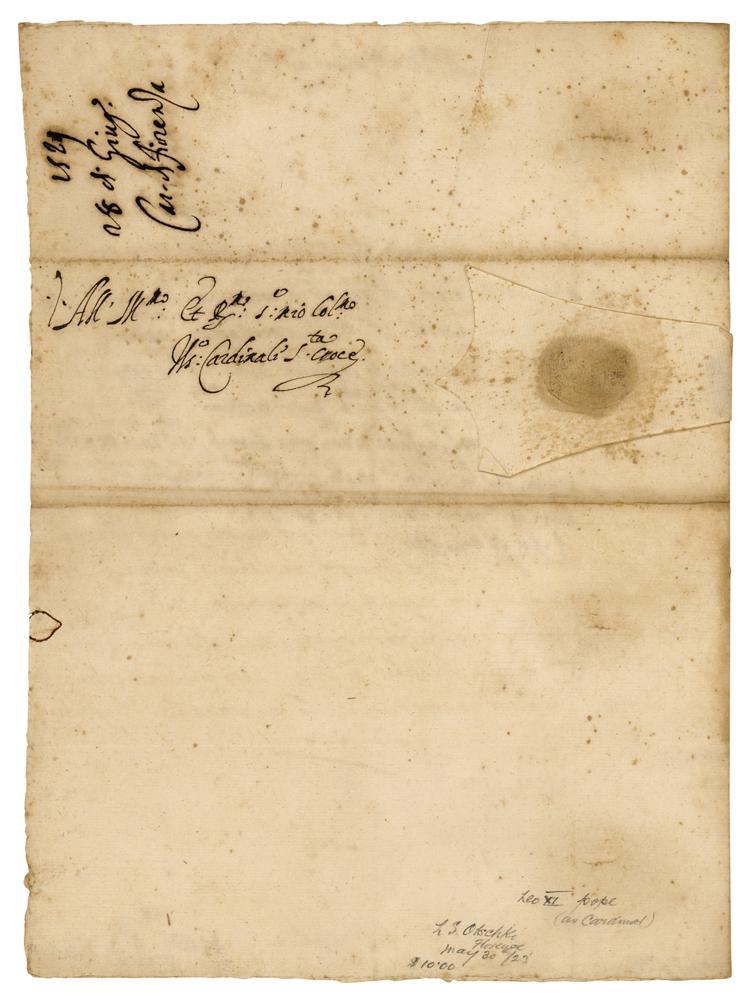 1589
28 di Giug.
Car. di fiorenza
All' Ill.mo et R.mo s.r mio Col.mo
Il s.r Cardinale S.ta Croce
Leo XI pope
(as Cardinal)
L S. Olschki
Florence
May 30 /23
$10.00